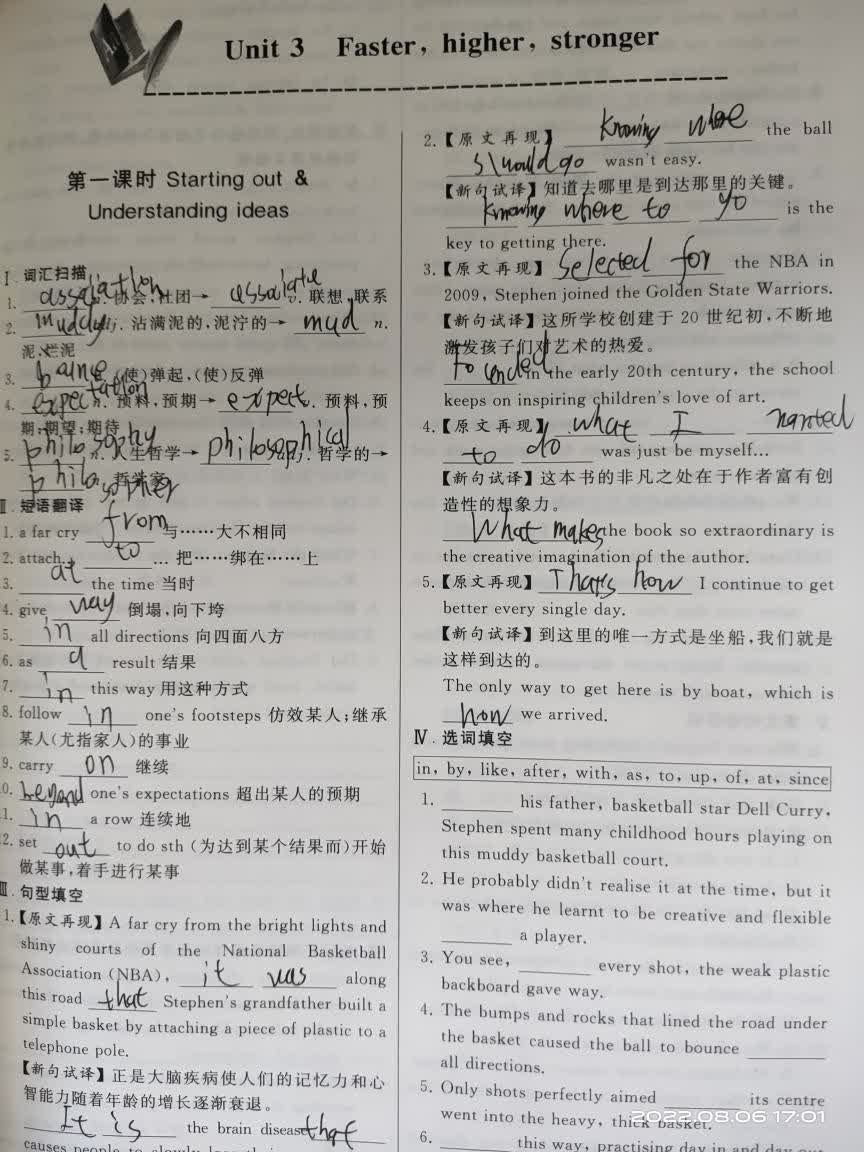 Unit 3 Faster, higher, stronger
第一课时 Starting out &
Understanding ideas
Ⅰ. 词汇扫描
1. assoliatlon 协会;社团→ assolate v. 联想,联系
2. muddy adj. 沾满泥的,泥泞的→ mud n.
泥;烂泥
3. (使)弹起,(使)反弹
4. expectation n. 预料,预期→ expect v. 预料,预
期;期望;期待
5. philosophy n. 人生哲学→ philosophical adj. 哲学的→
philosopher 哲学家
Ⅱ. 短语翻译
1. a far cry from 与……大不相同
2. attach... to ... 把……绑在……上
3. at the time 当时
4. give way 倒塌,向下垮
5. in all directions 向四面八方
6. as a result 结果
7. in this way 用这种方式
8. follow in one's footsteps 仿效某人;继承
某人(尤指家人)的事业
9. carry on 继续
0. beyond one's expectations 超出某人的预期
1. in a row 连续地
2. set out to do sth (为达到某个结果而)开始
做某事,着手进行某事
Ⅲ. 句型填空
1.【原文再现】A far cry from the bright lights and
shiny courts of the National Basketball
Association (NBA), it was along
this road that Stephen's grandfather built a
simple basket by attaching a piece of plastic to a
telephone pole.
【新句试译】正是大脑疾病使人们的记忆力和心
智能力随着年龄的增长逐渐衰退。
It is the brain disease that
causes people to slowly
2.【原文再现】 Knowing where the ball
should go wasn't easy.
【新句试译】知道去哪里是到达那里的关键。
Knowing where to go is the
key to getting there.
3.【原文再现】 Selected for the NBA in
2009, Stephen joined the Golden State Warriors.
【新句试译】这所学校创建于 20 世纪初,不断地
激发孩子们对艺术的热爱。
in the early 20th century, the school
keeps on inspiring children's love of art.
4.【原文再现】 what I wanted
to do was just be myself...
【新句试译】这本书的非凡之处在于作者富有创
造性的想象力。
What makes the book so extraordinary is
the creative imagination of the author.
5.【原文再现】 That's how I continue to get
better every single day.
【新句试译】到这里的唯一方式是坐船,我们就是
这样到达的。
The only way to get here is by boat, which is
how we arrived.
Ⅳ. 选词填空
in, by, like, after, with, as, to, up, of, at, since
1. ______ his father, basketball star Dell Curry,
Stephen spent many childhood hours playing on
this muddy basketball court.
2. He probably didn't realise it at the time, but it
was where he learnt to be creative and flexible
______ a player.
3. You see, ______ every shot, the weak plastic
backboard gave way.
4. The bumps and rocks that lined the road under
the basket caused the ball to bounce ______
all directions.
5. Only shots perfectly aimed ______ its centre
went into the heavy, thick basket.
6. ______ this way, practising day in and day out
2022.08.06 17:01